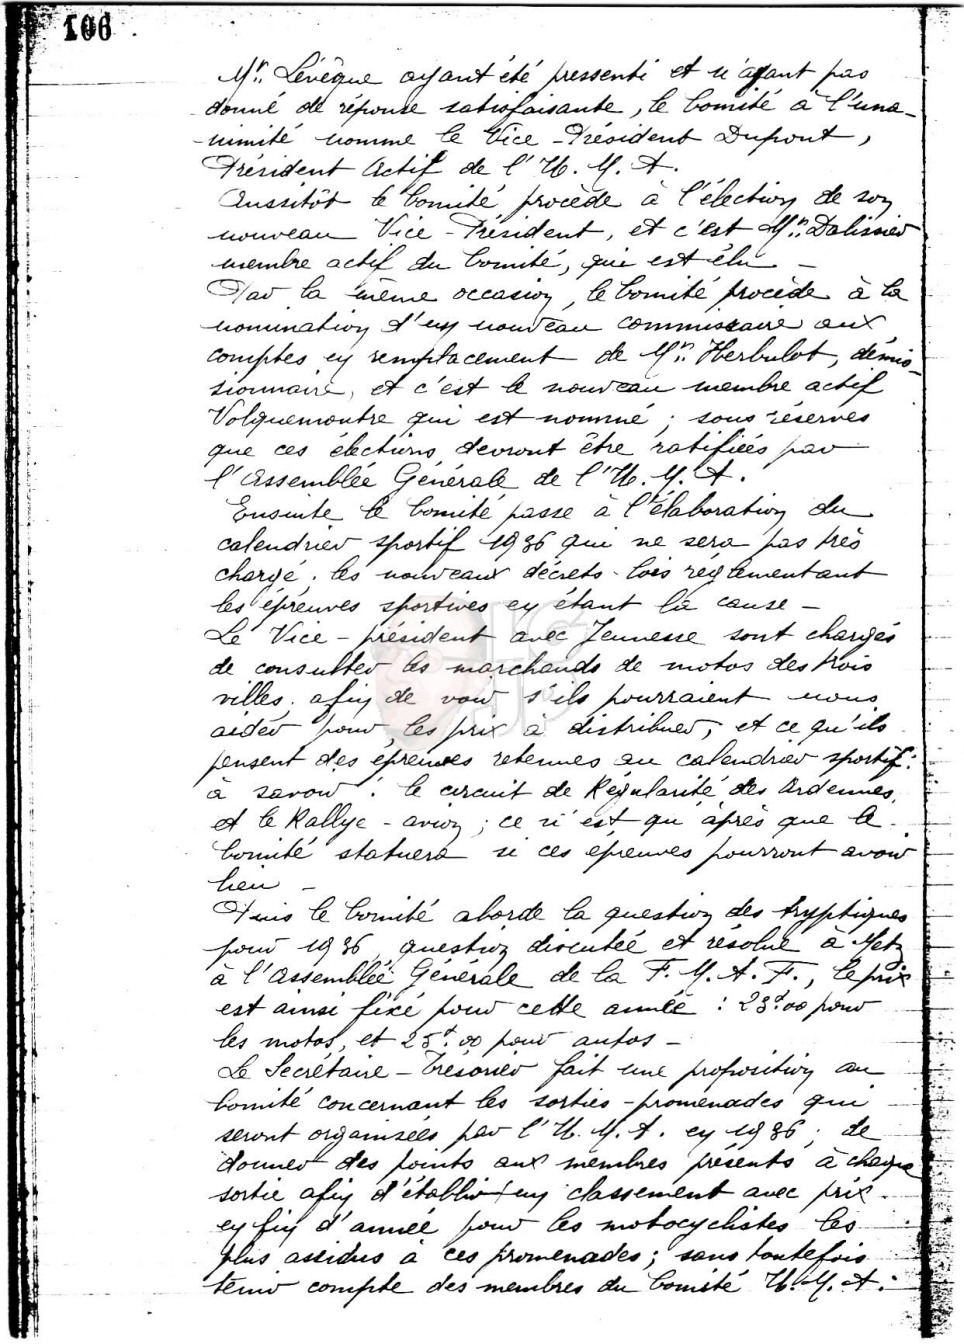 106
Mr. Lévêque ayant été pressenti et n'ayant pas
donné de réponse satisfaisante, le Comité à l'una-
nimité nomme le Vice-Président Dupont,
Président Actif de l'U.M.A.
Aussitôt le Comité procède à l'élection de son
nouveau Vice-Président, et c'est Mr. Dalissier
membre actif du Comité, qui est élu –
Par la même occasion, le Comité procède à la
nomination d'un nouveau commissaire aux
comptes en remplacement de Mr. Herbulot, démis-
sionnaire, et c'est le nouveau membre actif
Volquemontre qui est nommé ; sous réserves
que ces élections devront être ratifiées par
l'Assemblée Générale de l'U.M.A.
Ensuite le Comité passe à l'élaboration du
calendrier sportif 1936 qui ne sera pas très
chargé. les nouveaux décrets-lois réglementant
les épreuves sportives en étant la cause –
Le Vice-président avec Jeunesse sont chargés
de consulter les marchands de motos des trois
villes, afin de voir s'ils pourraient nous
aider pour les prix à distribuer, et ce qu'ils
pensent des épreuves retenues au calendrier sportif.
à savoir : le circuit de Régularité des Ardennes,
et le Rallye-avion ; ce n'est qu'après que le
Comité statuera si ces épreuves pourront avoir
lieu –
Puis le Comité aborde la question des tryptiques
pour 1936, question discutée et résolue à Metz
à l'Assemblée Générale de la F.M.A.F., le prix
est ainsi fixé pour cette année : 23f.00 pour
les motos, et 25f.00 pour autos –
Le Secrétaire-Trésorier fait une proposition au
Comité concernant les sorties-promenades qui
seront organisées par l'U.M.A. en 1936 ; de
donner des points aux membres présents à chaque
sortie afin d'établir un classement avec prix
en fin d'année pour les motocyclistes les
plus assidus à ces promenades ; sans toutefois
tenir compte des membres du Comité U.M.A.